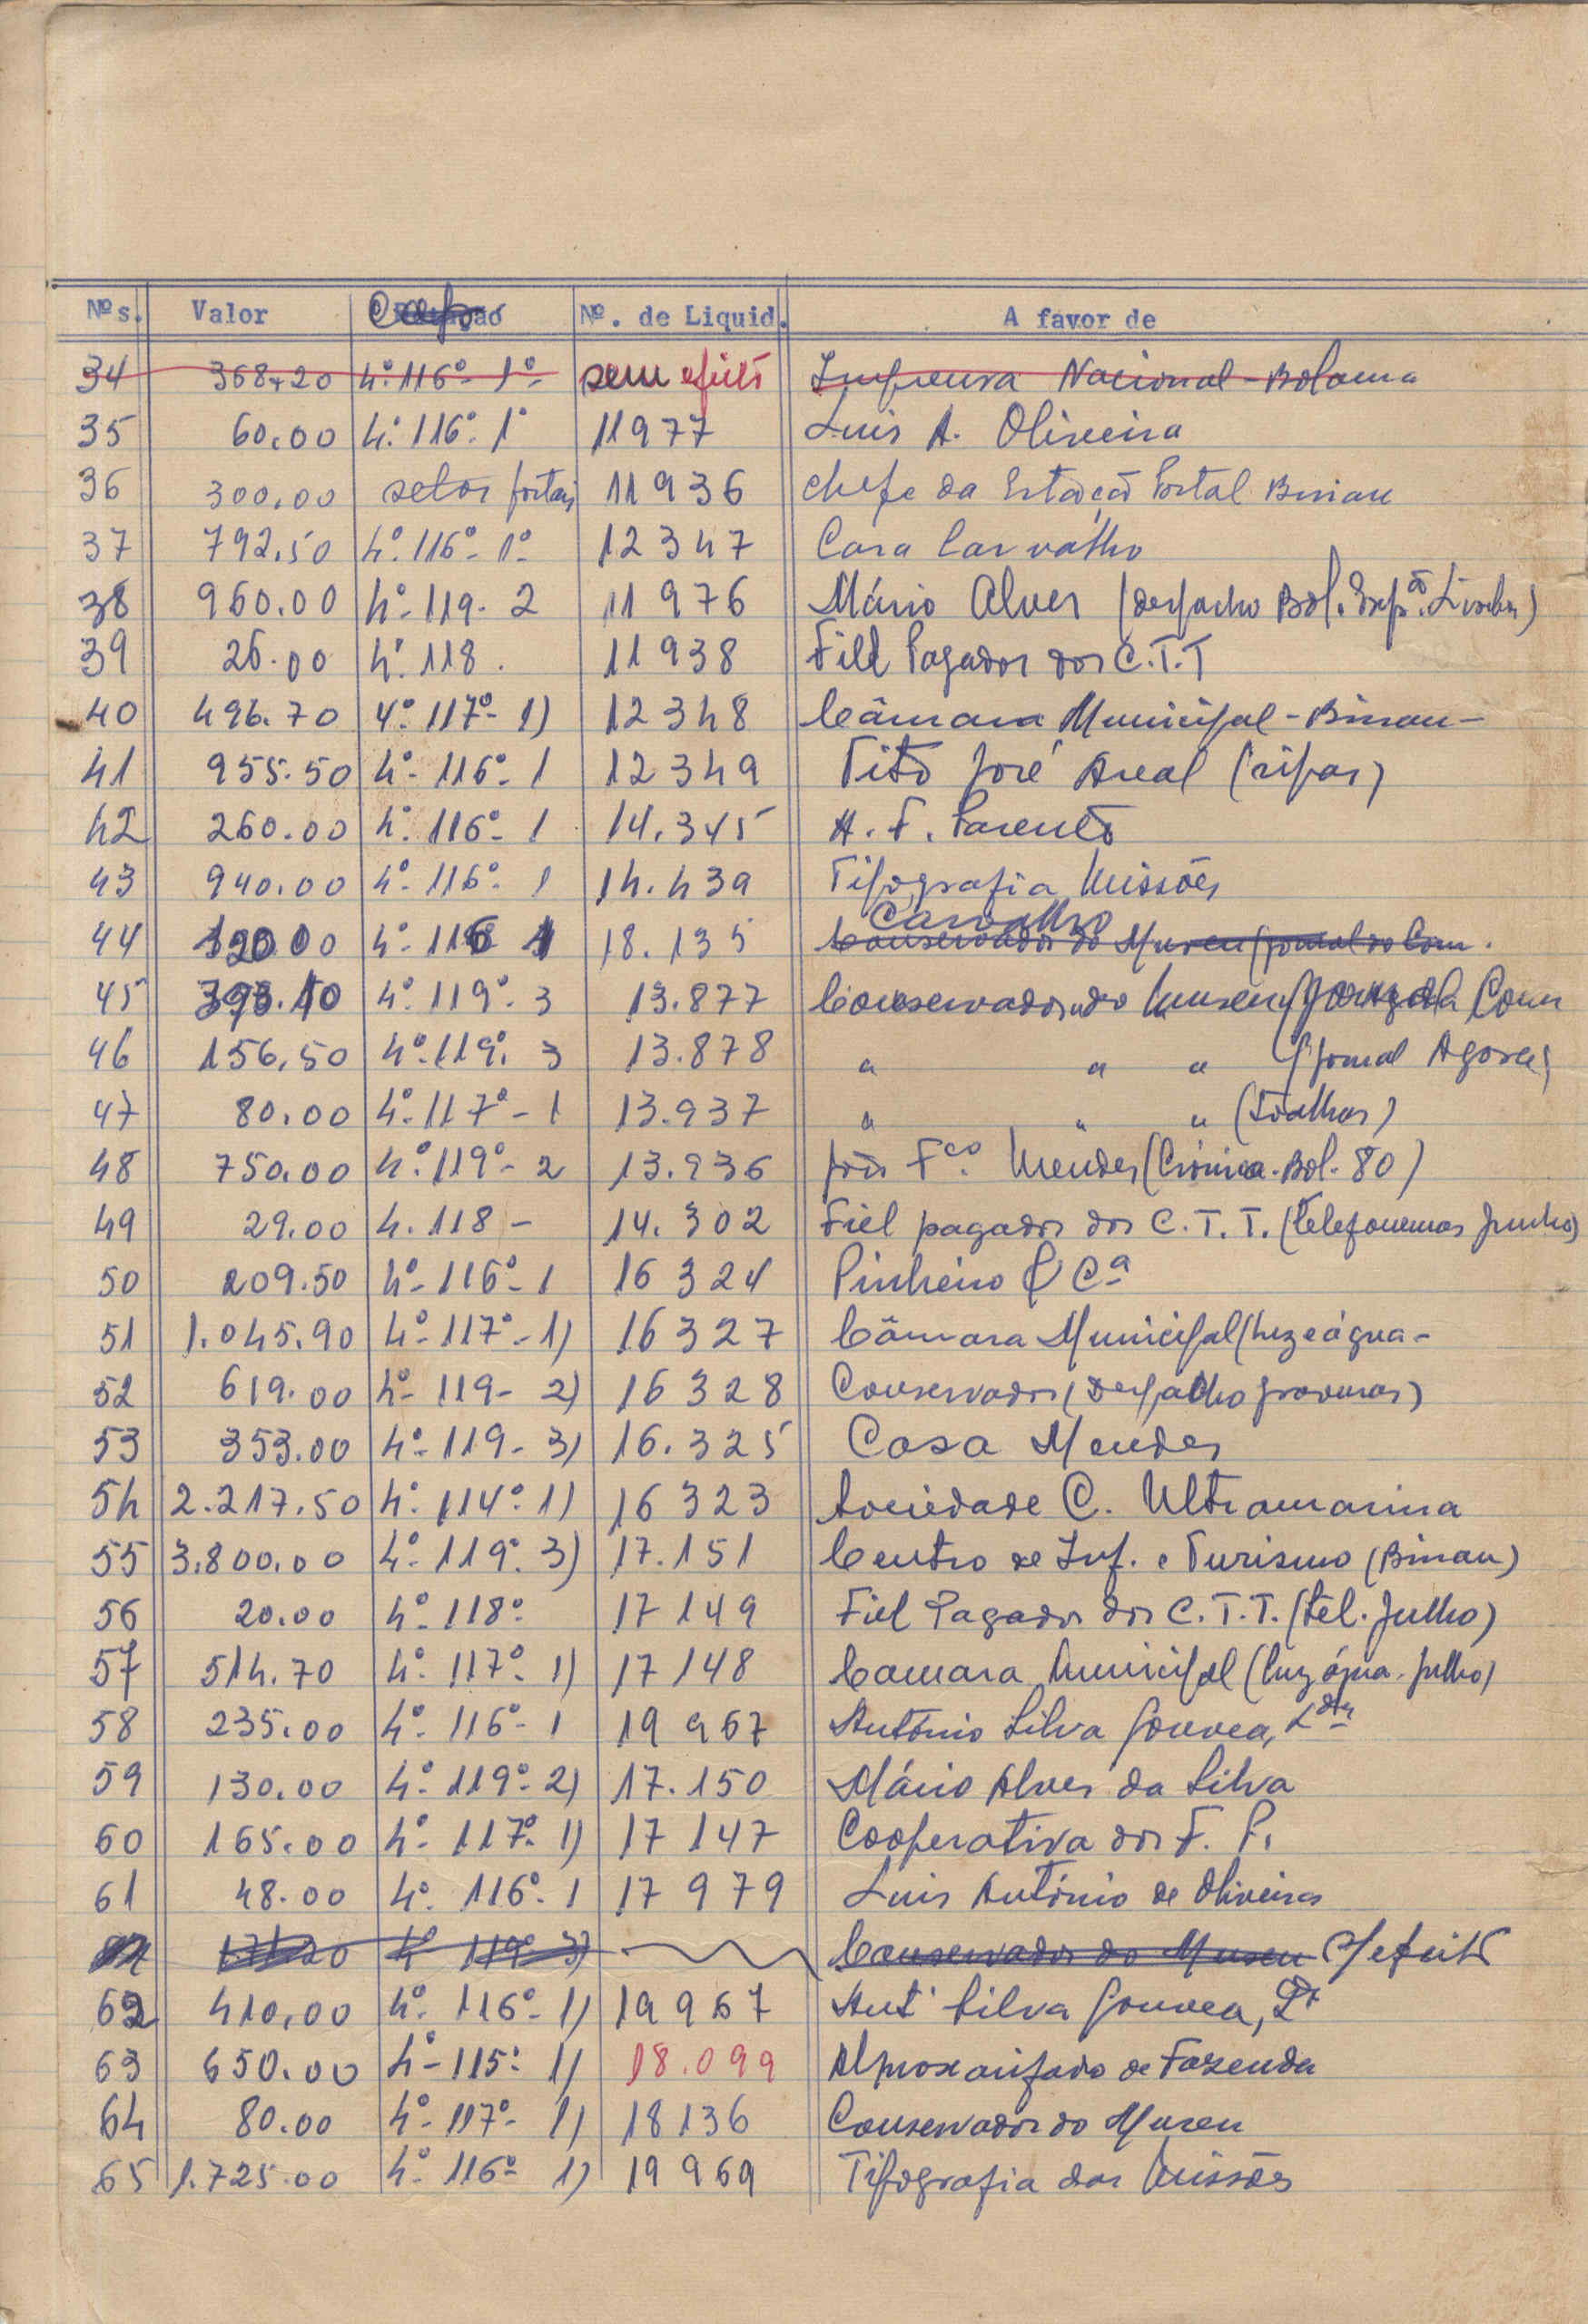 Nºs. Valor Cap. Nº. de Liquid. A favor de
34 368,20 4º.116º-1º- sem efeito Imprensa Nacional-Bolama
35 60.00 4º.116º.1º 11977 Luis A. Oliveira
36 300.00 selos postais 11936 Chefe da Estação Postal Bissau
37 792.50 4º.116º-1º- 12347 Casa Carvalho
38 960.00 4º-119-2 11976 Mário Alves (despacho Bol. Lisboa)
39 26.00 4º.118. 11938 Fiel Pagador dos C.T.T
40 496.70 4º.117º-1) 12348 Câmara Municipal-Bissau-
41 955.50 4º-116º-1 12349 Tito José Areal (ripas)
42 260.00 4º.116º-1 14.345 A. F. Parente
43 940.00 4º-116º-1 14.439 Tipografia Missões
44 120.00 4º-116 1 18.135 Carvalho Conservador do Museu (jornal do Com.
45 393.10 4º-119º.3 13.877 Conservador do Museu (Jornal do Com
46 156.50 4º-119º.3 13.878 " " " (Jornal Agora)
47 80.00 4º.117º-1 13.937 " " " (toalhas)
48 750.00 4º.119º-2 13.936 Fco. Mendes (Crónica-Bol. 80)
49 29.00 4.118- 14.302 Fiel pagador dos C.T.T. (telefonemas Junho)
50 209.50 4º-116º-1 16324 Pinheiro & Cª
51 1.045.90 4º-117º-1) 16327 Câmara Municipal (luz e água-
52 619.00 4º-119-2) 16328 Conservador (Despacho gravuras)
53 353.00 4º-119-3) 16.325 Casa Mendes
54 2.217.50 4º.114º.1) 16323 Sociedade C. Ultramarina
55 3.800.00 4º-119º.3) 17.151 Centro de Inf. e Turismo (Bissau)
56 20.00 4º-118º 17149 Fiel Pagador dos C.T.T. (tel. Julho)
57 514.70 4º-117º-1) 17148 Camara Municipal (luz água-Julho)
58 235.00 4º-116º-1 19967 António Silva Gouvea, Lda
59 130.00 4º-119º-2) 17.150 Mário Alves da Silva
60 165.00 4º-117º-1) 17147 Cooperativa dos F. P.
61 48.00 4º.116º-1 17979 Luis António de Oliveira
4º 119º 3) Conservador do Museu S/efeito
62 410.00 4º-116º-1) 19967 Antº Silva Gouvea, Lª
63 650.00 4º-115º 1) 18.099 Almoxarifado de Fazenda
64 80.00 4º-117º-1) 18136 Conservador do Museu
65 1.725.00 4º-116º 1) 19969 Tipografia das Missões